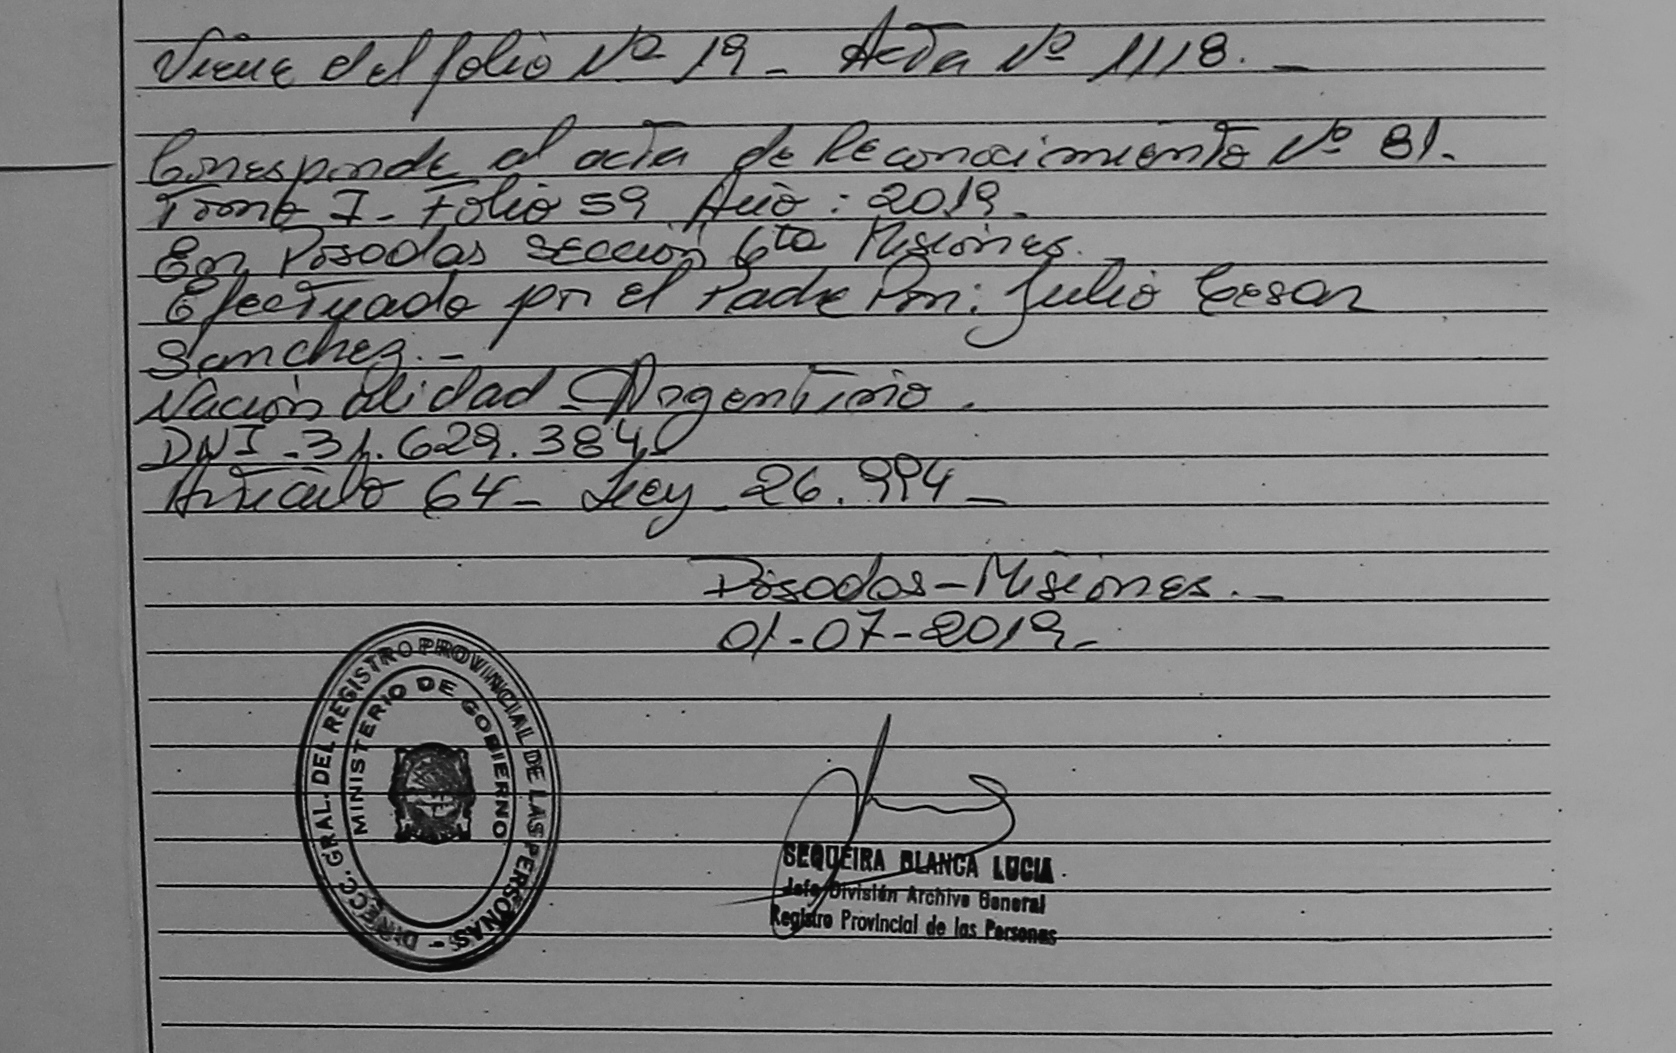 Viene del folio Nº 19 - Acta Nº 1118. -
Corresponde al acta de Reconocimiento Nº 81.
Tomo I - Folio 59 Año : 2019.
En Posadas sección 6ta Misiones.
Efectuado por el Padre Por: Julio Cesar
Sanchez. -
Nacionalidad - Argentino.
DNI - 31.629.384
Articulo 64 - Ley - 26.994 -
Posadas - Misiones. -
01-07-2019 -
DIRECC. GRAL. DEL REGISTRO PROVINCIAL DE LAS PERSONAS -
MINISTERIO DE GOBIERNO
SEQUEIRA BLANCA LUCIA
Jefe División Archivo General
Registro Provincial de las Personas